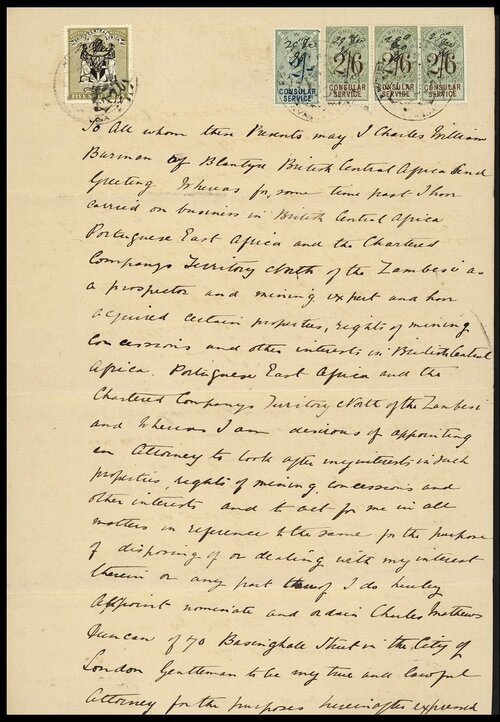 2/6 2/6 2/6
CONSULAR SERVICE CONSULAR SERVICE CONSULAR SERVICE CONSULAR SERVICE
To All whom these Presents may I Charles William
Burman of Blantyre British Central Africa Send
Greeting Whereas for some time past I have
carried on business in British Central Africa
Portuguese East Africa and the Chartered
Companys Territory North of the Zambesi as
a prospector and mining expert and have
acquired certain properties, rights of mining
concessions and other interests in British Central
Africa. Portuguese East Africa and the
Chartered Companys Territory North of the Zambesi
and Whereas I am desirous of appointing
an Attorney to look after my interests in such
properties, rights of mining, concessions and
other interests and to act for me in all
matters in reference to the same for the purpose
of disposing of or dealing with my interest
therein or any part thereof I do hereby
Appoint nominate and ordain Charles Mathews
Duncan of 70 Basinghale Street in the City of
London Gentleman to be my true and lawful
Attorney for the purposes hereinafter expressed